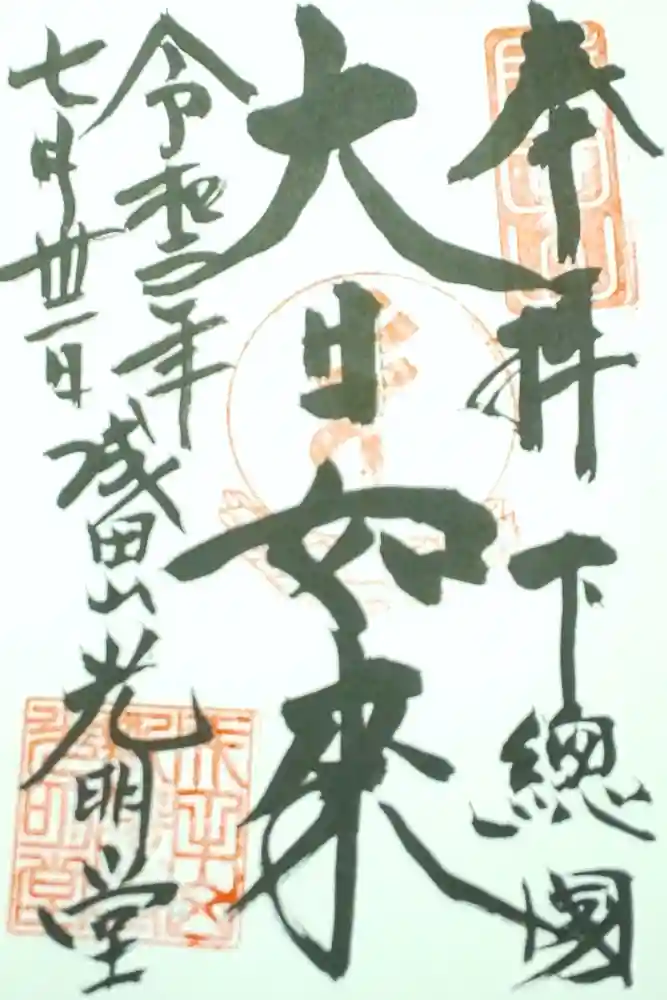 奉拝 下總國
大日如来
令和二年
七月卅一日 成田山光明堂